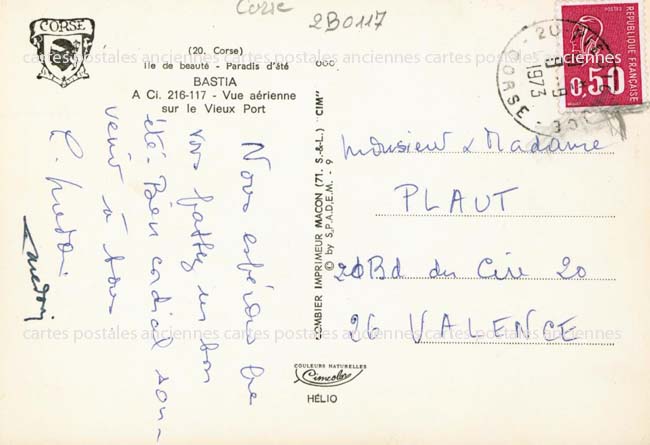 Corse
2B0117
CORSE
(20. Corse)
Ile de beauté - Paradis d'été
BASTIA
A Ci. 216-117 - Vue aérienne
sur le Vieux Port
COMBIER IMPRIMEUR MACON (71. S.-&-L.) "CIM"
© by S.P.A.D.E.M. - 9
REPUBLIQUE FRANÇAISE
0,50
1973
CORSE
Monsieur & Madame
PLAUT
20 Bd du Cire 20
26 VALENCE
Nous espérons
vous un bon
été. Bien cordial sou-
venir à tous
COULEURS NATURELLES
Cimcolor
HÉLIO
cartes postales anciennes cartes postales anciennes cartes postales anciennes
cartes postales anciennes cartes postales anciennes cartes postales anciennes